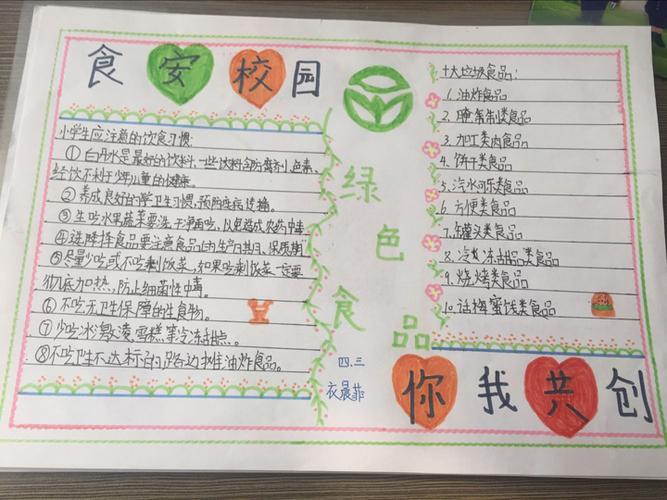 食安校园
小学生应注意的饮食习惯:
① 白开水是最好的饮料,一些饮料含防腐剂,色素,
经饮不利于少年儿童的健康。
② 养成良好的学卫生习惯,预防疾病传播。
③ 生吃水果蔬菜要洗干净再吃,以免造成农药中毒
④ 选择择食品要注意食品的生产日期、保质期
⑤ 尽量少吃或不吃剩饭菜,如果吃剩饭菜一定要
彻底加热,防止细菌性中毒。
⑥ 不吃无卫生保障的生食物。
⑦ 少吃冰激凌雪糕等冷冻甜点。
⑧ 不吃卫生不达标的路边摊油炸食品。
绿色食品
四.三
衣晨菲
十大垃圾食品:
1.油炸食品
2.腌制类食品
3.加工类肉食品
4.饼干类食品
5.汽水可乐食品
6.方便类食品
7.罐头类食品
8.冷冻甜品类食品
9.烧烤类食品
10.话梅蜜饯类食品
你我共创